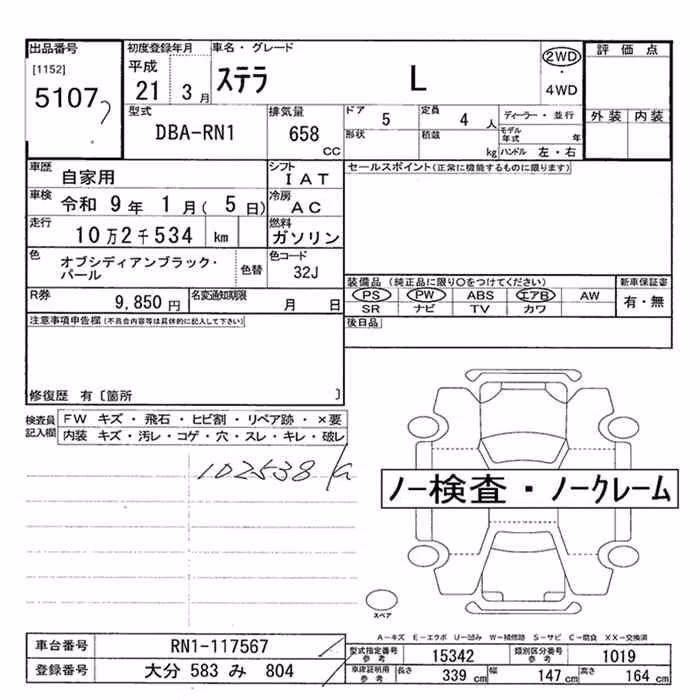 出品番号
[1152]
5107
初度登録年月
平成
21 3月
車名・グレード
ステラ L
2WD
・
4WD
評価点
外装 内装
型式
DBA-RN1
排気量
658
CC
ドア 5
定員 4 人
ディーラー・並行
形状
積載 kg
モデル年式 年
ハンドル 左・右
車歴 自家用
シフト IAT
車検 令和 9年 1月( 5日)
冷房 AC
走行 10万2千534 km
燃料 ガソリン
色 オブシディアンブラック・パール
色替
色コード 32J
R券 9,850円
名変通知期限 月 日
セールスポイント(正常に機能するものに限ります)
装備品 (純正品に限り〇をつけてください)
PS PW ABS エアB AW
SR ナビ TV カワ
新車保証書
有・無
後日品
注意事項申告欄(不具合内容等は具体的に記入して下さい)
修復歴 有〔箇所 〕
検査員記入欄
FW キズ・飛石・ヒビ割・リペア跡・×要
内装 キズ・汚レ・コゲ・穴・スレ・キレ・破レ
102538
ノー検査・ノークレーム
スペア
A―キズ E―エクボ U―凹み W―補修跡 S―サビ C―腐食 XX―交換済
車台番号 RN1-117567
登録番号 大分 583 み 804
型式指定番号 参考 15342
類別区分番号 参考 1019
車庫証明用 参考 長さ 339 cm 幅 147 cm 高さ 164 cm